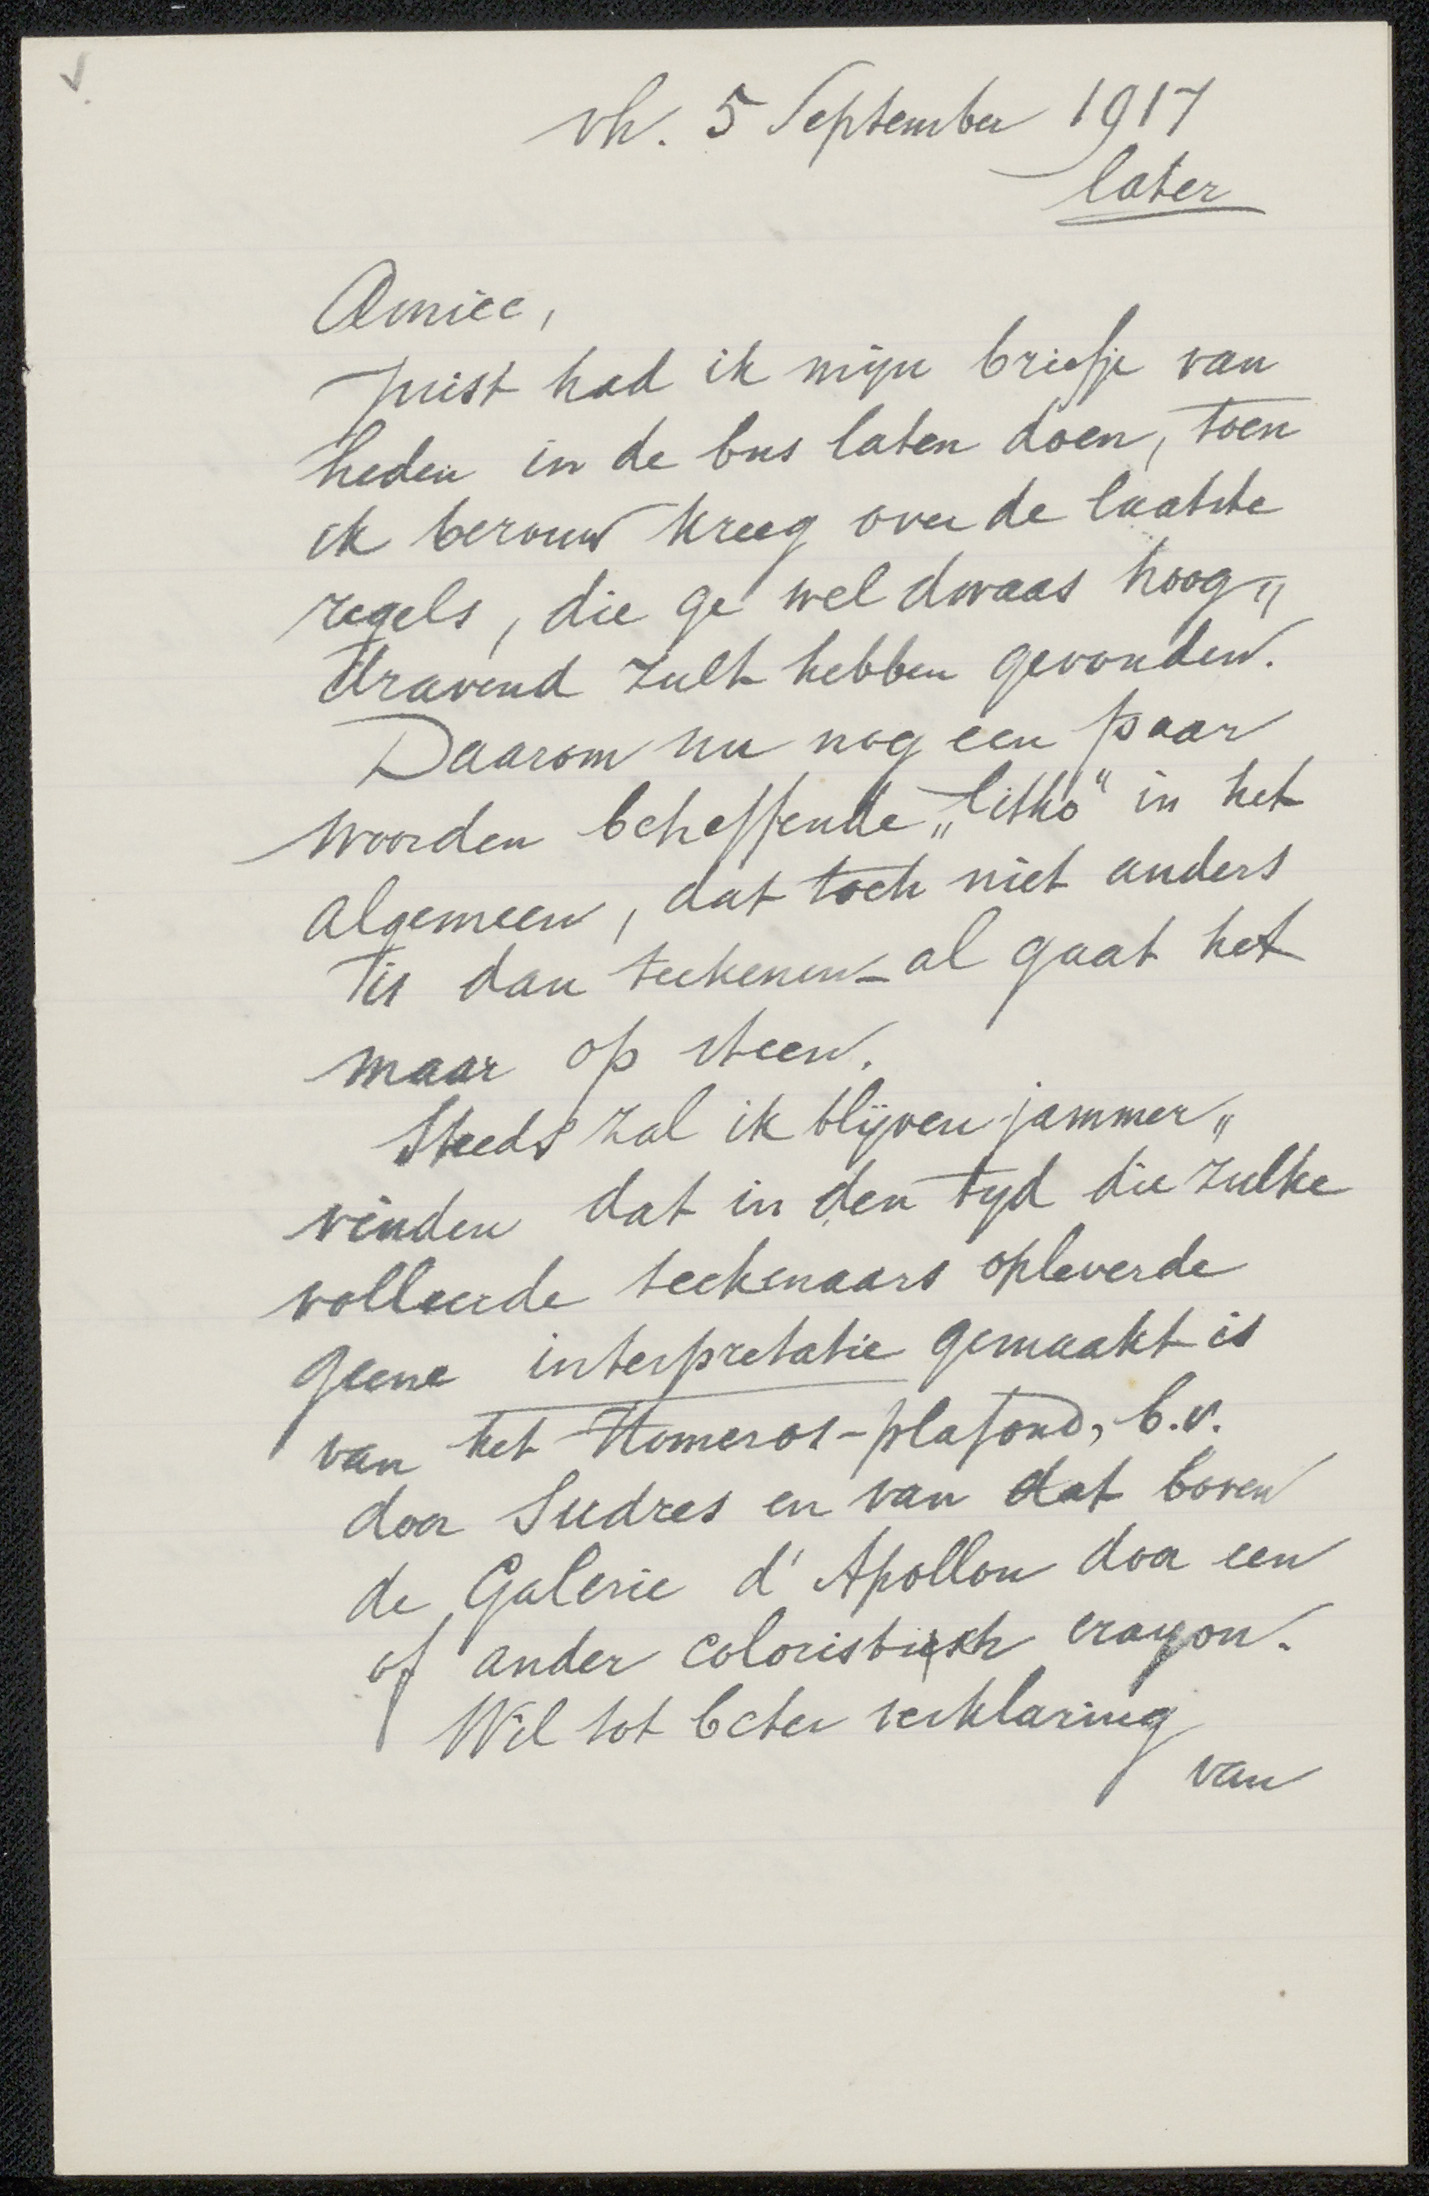 vh. 5 September 1917
later
Amice,
Juist had ik mijn briefje van
heden in de bus laten doen, toen
ik berouw kreeg over de laatste
regels, die ge wel dwaas hoog„
dravend zult hebben gevonden.
Daarom nu nog een paar
woorden betreffende „litho" in het
algemeen, dat toch niet anders
is dan teekenen - al gaat het
maar op steen.
Steeds zal ik blijven jammer„
vinden dat in den tyd die zulke
volleerde teekenaars opleverde
geene interpretatie gemaakt is
van het Homeros-plafond, b.v.
door Sudres en van dat boven
de Galerie d'Apollon door een
of ander coloristisch crayon.
Wil tot beter verklaring
van